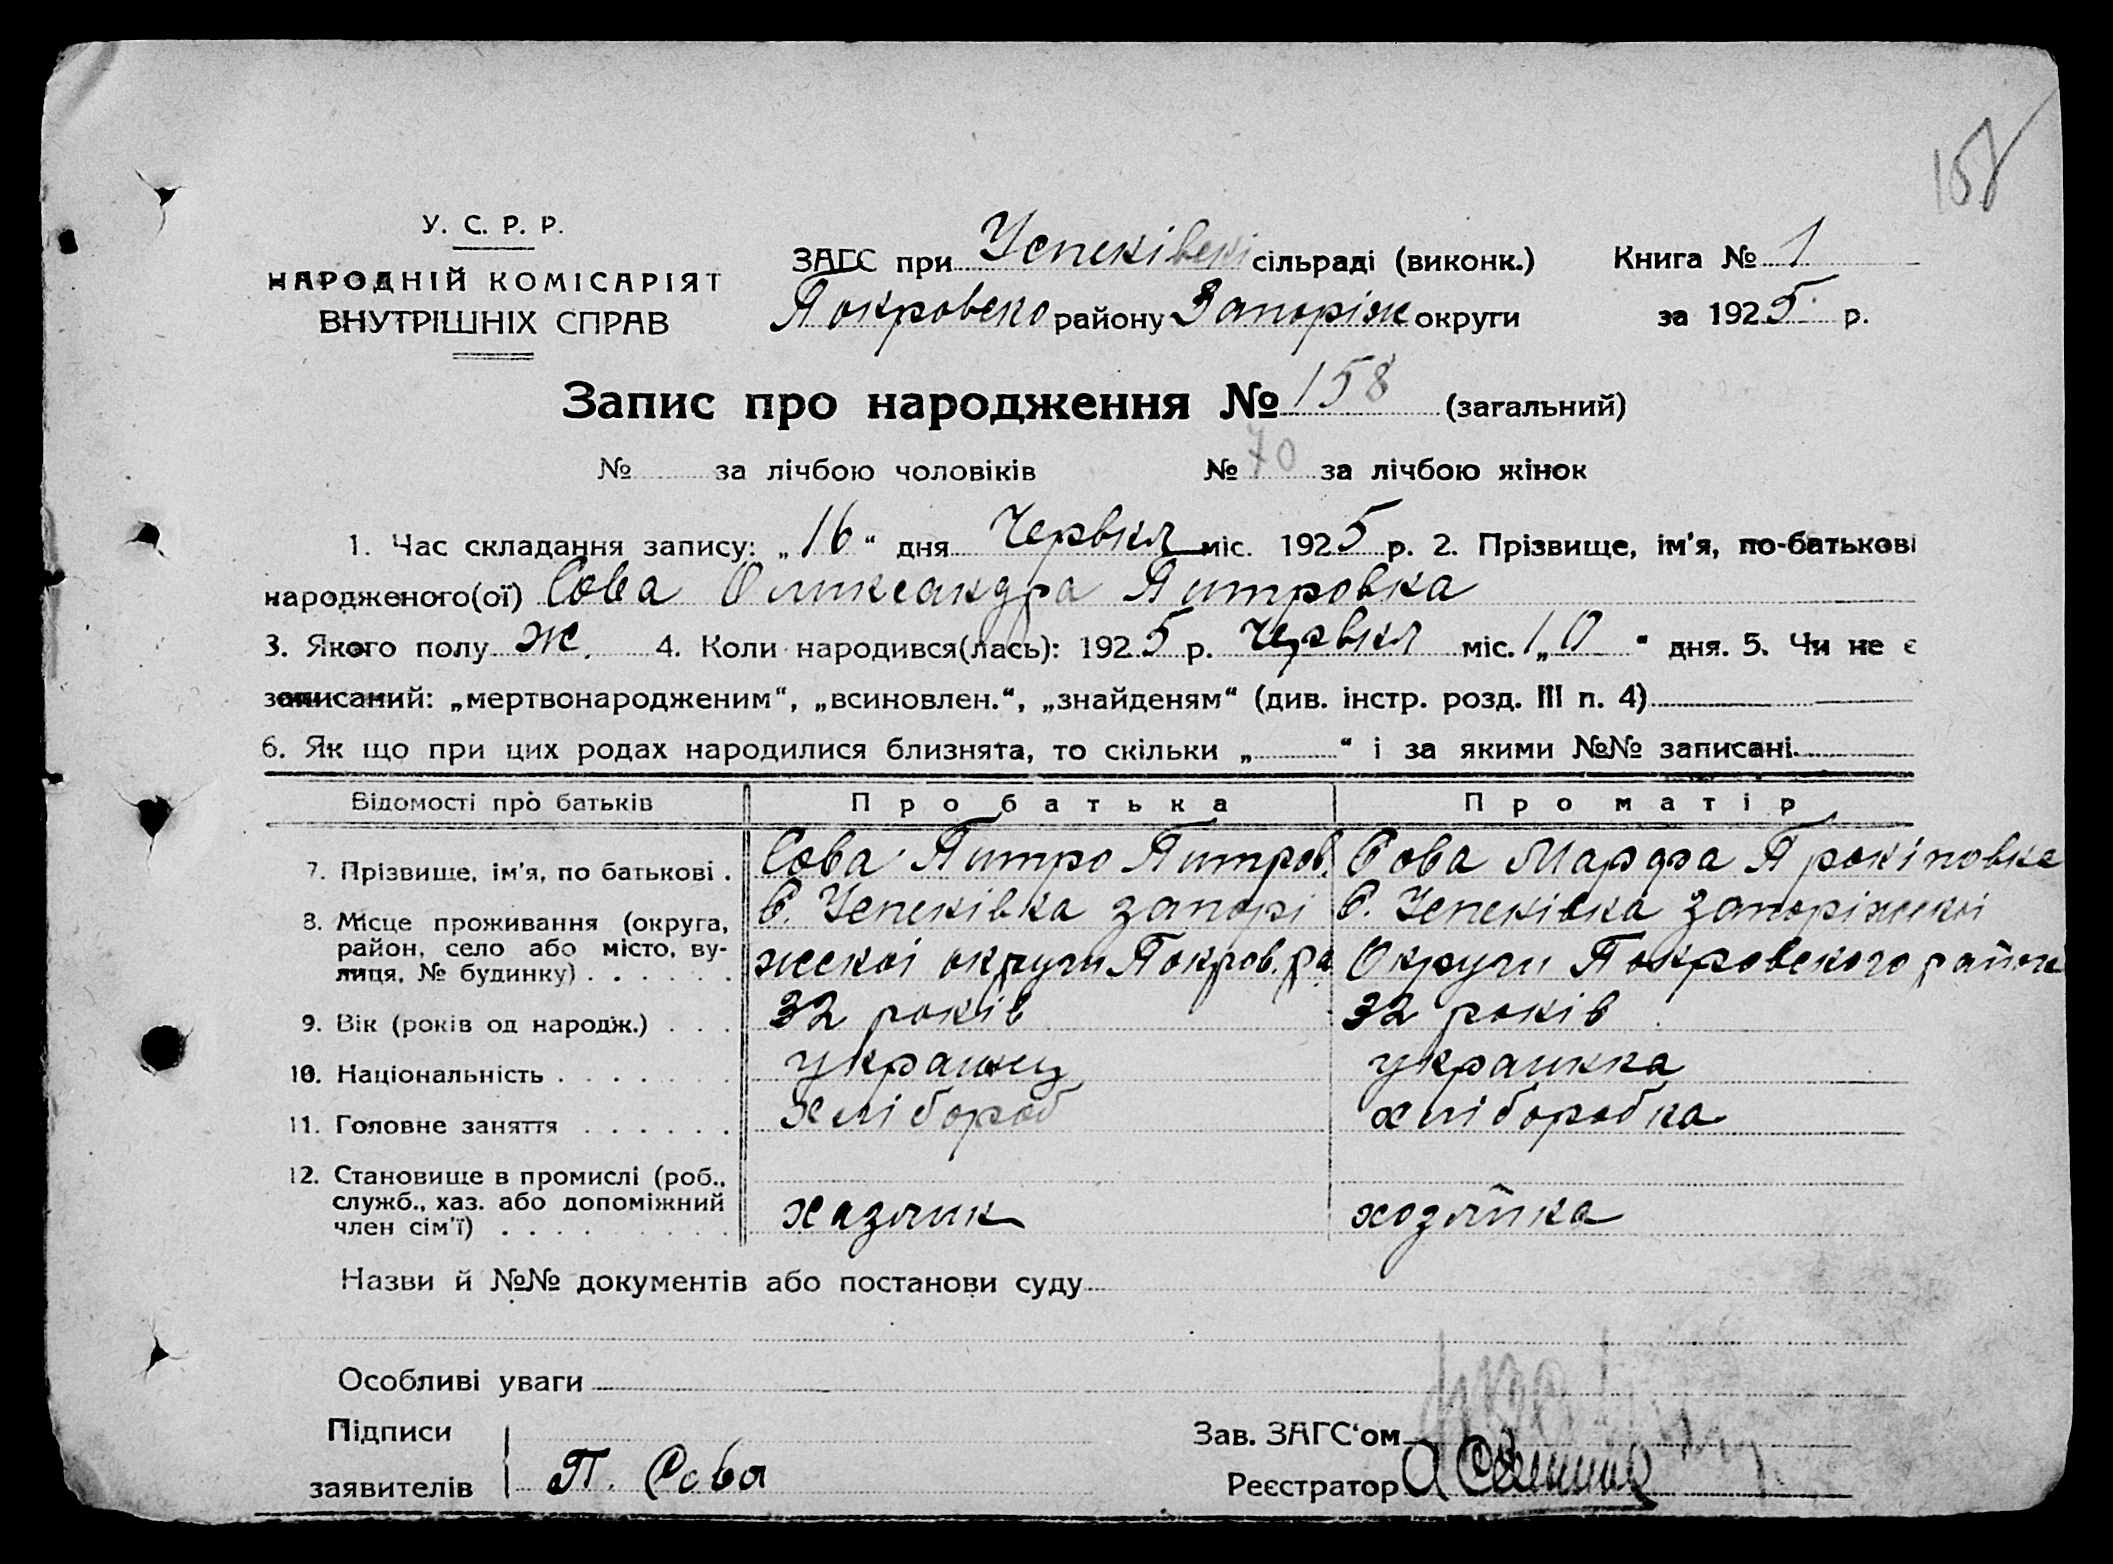 158
У. С. Р. Р.
НАРОДНІЙ КОМІСАРІЯТ
ВНУТРІШНІХ СПРАВ
ЗАГС при Успеківскі сільраді (виконк.) Книга № 1
Покровско району Запоріж округи за 1925 р.
Запис про народження № 158 (загальний)
№ за лічбою чоловіків № 70 за лічбою жінок
1. Час складання запису: „16“ дня Червня міс. 1925 р. 2. Прізвище, ім'я, по-батькові
народженого(ої) Сова Оликсандра Питровна
3. Якого полу Ж. 4. Коли народився(лась): 1925 р. Червня міс. „10“ дня. 5. Чи не є
записаний: „мертвонародженим“, „всиновлен.“, „знайденям“ (див. інстр. розд. III п. 4)
6. Як що при цих родах народилися близнята, то скільки „ “ і за якими №№ записані
Відомості про батьків Про батька Про матір
7. Прізвище, ім'я, по батькові . Сова Питро Питров. Сова Марфа Прокіповна
8. Місце проживання (округа, район, село або місто, вулиця, № будинку) . . . . . . С. Успеківка Запоріжскоі округи Покров. ра С. Успеківка Запоріжскоі Округи Покровского район
9. Вік (років од народж.) . . . 32 років 32 років
10. Національність . . . . . . . украинец украинка
11. Головне заняття . . . . . . хлібороб хліборобка
12. Становище в промислі (роб., служб., хаз. або допоміжний член сім'ї) . . . . . . . . . хазяин хозяйка
Назви й №№ документів або постанови суду
Особливі уваги
Підписи Зав. ЗАГС'ом
заявителів П. Сова Реєстратор